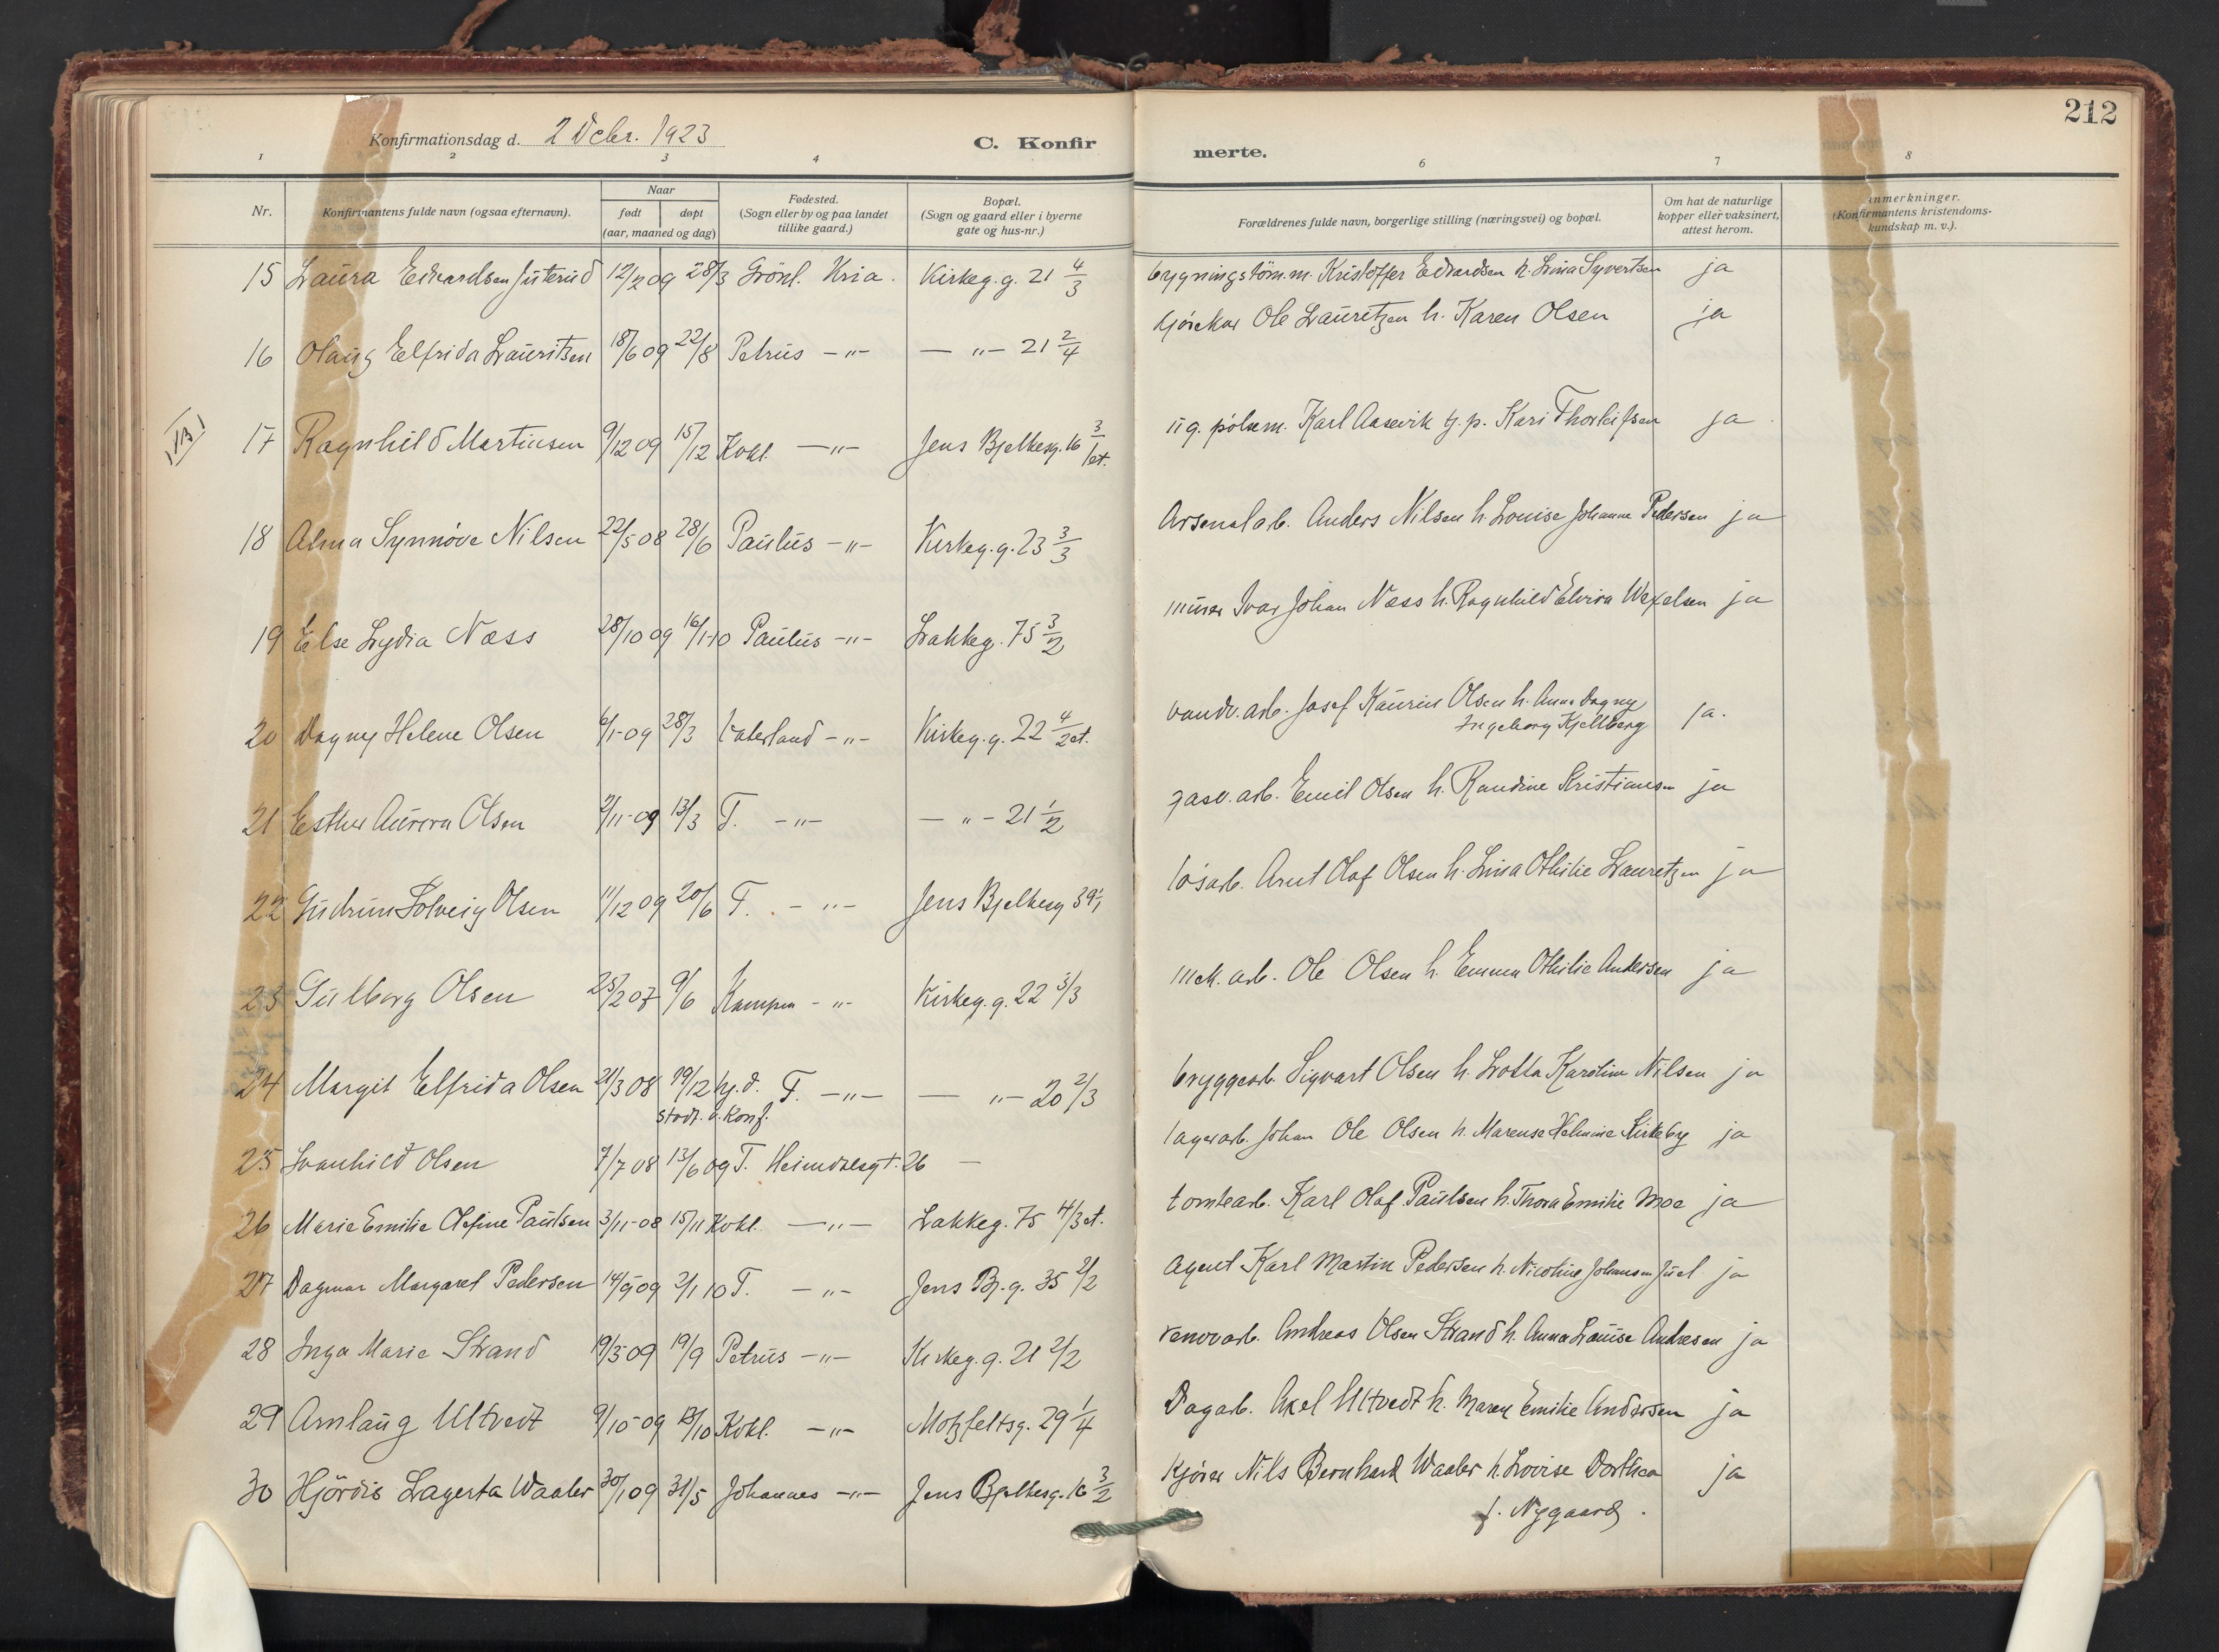 212
Konfirmationsdag d. 2 Debr. 1923
C. Konfir
merte.
1 2 3 4 6 7 8
Nr.
Konfirmantens fulde navn (ogsaa efternavn).
Naar
født døpt
(aar, maaned og dag)
Fødested.
(Sogn eller by og paa landet
tillike gaard.)
Bopæl.
(Sogn og gaard eller i byerne
gate og hus-nr.)
Forældrenes fulde navn, borgerlige stilling (næringsvei) og bopæl.
Om hat de naturlige
kopper eller vaksinert,
attest herom.
Anmerkninger.
(Konfirmantens kristendoms-
kundskap m. v.).
15 Laura Edvardsen Juterud 12/2 09 28/3 Grönl. Kria. Kirkeg. g. 21 4/3 bygningstöm.m. Kristoffer Edvardsen h. Lina Syvertsen ja
16 Olaug Elfrida Lauritsen 18/6 09 22/8 Petrus -"- -"- 21 2/4 Ole Lauretzen h. Karen Olsen ja
17 Ragnhild Martinsen 9/12 09 15/12 Kokl. -"- Jens Bjelkesg. 16 3/1 et. ug. pölsem. Karl Aasevik tj. p. Kari Thorleifsen ja
18 Alma Synnöve Nilsen 22/5 08 28/6 Paulus -"- Kirkeg. g. 23 3/3 Arsenalarb. Anders Nilsen h. Louise Johanne Pedersen ja
19 Else Lydia Næss 28/10 09 16/1-10 Paulus -"- Lakkeg. 75 3/2 murer Ivar Johan Næss h. Ragnhild Elvira Wexelsen ja
20 Dagny Helene Olsen 6/1-09 28/3 Vaterland -"- Kirkeg. g. 22 4/2 et. vandv. arb. Josef Olsen h. Anna Dagny
Ingeborg Kjellberg ja.
21 Esther Aurora Olsen 2/11-09 13/3 T. -"- -"- 21 1/2 gasv. arb. Emil Olsen h. Randine Kristiansen ja
22 Gudrun Solveig Olsen 11/12 09 20/6 T. -"- Jens Bjelkesg 39 1/1 lösarb. Arnt Olaf Olsen h. Lina Othilie Lauretzen ja
23 Gulborg Olsen 25/2 07 9/6 Kampen -"- Kirkeg. g. 22 3/3 mek. arb. Ole Olsen h. Emma Othilie Andersen ja
24 Margit Elfrida Olsen 21/3 08 19/12 hj. d. T. -"- -"- 20 2/3 bryggearb. Sigvart Olsen h. Lotta Karoline Nilsen ja
stadf. v. Konf.
25 Svanhild Olsen 7/7 08 13/6 09 T. Heimdalsgt. 26 - lagerarb. Johan Ole Olsen h. Marense Helmine Kirkeby ja
26 Marie Emilie Olefine Paulsen 3/11-08 15/11 Kokl. -"- Lakkeg. 75 4/3 et. tomtearb. Karl Olaf Paulsen h. Thora Emilie Moe ja
27 Dagmar Margaret Pedersen 14/9 09 2/1 10 T. -"- Jens Bj. g. 35 2/2 Agent Karl Martin Pedersen h. Nicoline Johansen Juel ja
28 Inga Marie Strand 19/5 09 19/9 Petrus -"- Kirkeg. g. 21 2/2 renovarb. Andreas Olsen Strand h. Anna Louise Andresen ja
29 Arnlaug Ultvedt 9/10-09 17/10 Kokl. -"- Motzfeltsg. 29 1/4 Dagarb. Axel Ultvedt h. Maren Emilie Andersen ja
30 Hjördis Lagerta Waaler 30/1 09 31/5 Johannes -"- Jens Bjelkesg. 16 3/2 Kjörer Nils Bernhard Waaler h. Lovise Dorthea ja
f. Nygaard.